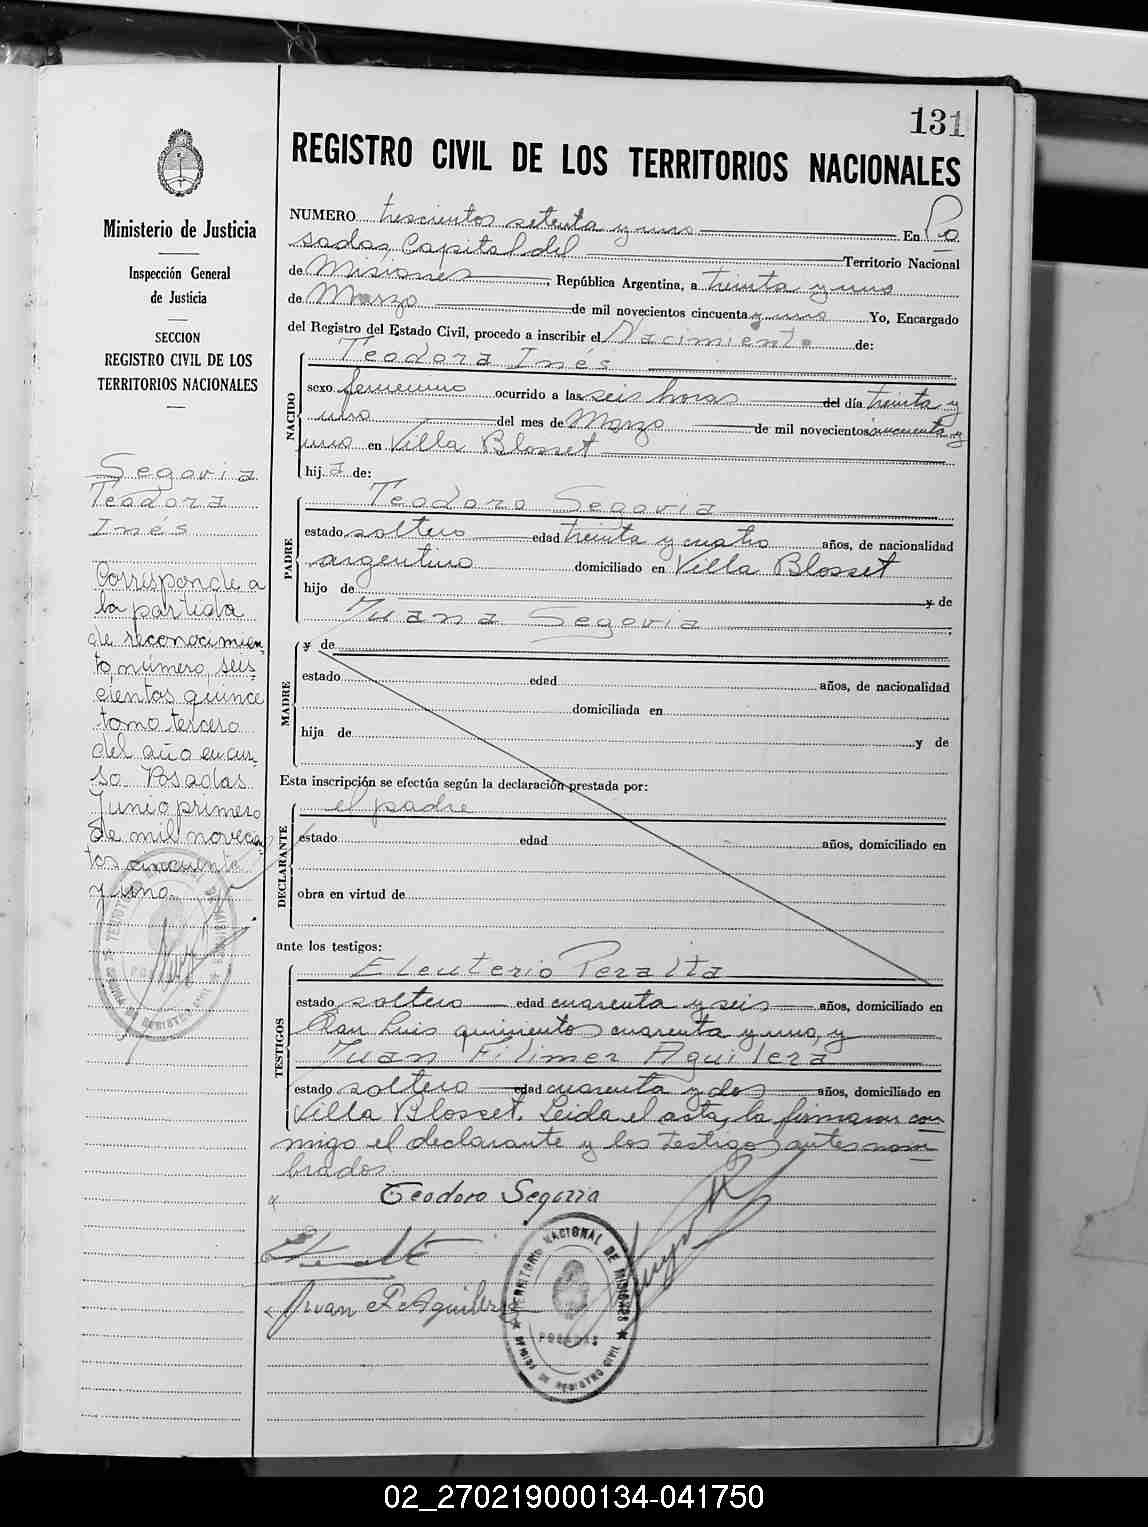 131
REGISTRO CIVIL DE LOS TERRITORIOS NACIONALES
Ministerio de Justicia
Inspección General
de Justicia
SECCION
REGISTRO CIVIL DE LOS
TERRITORIOS NACIONALES
Segovia
Teodora
Inés
Corresponde a
la partida
de reconocimien
to número seis
cientos quince
tomo tercero
del año en cur-
so. Posadas
Junio primero
de mil novecien
tos cincuenta
y uno.
NUMERO trescientos setenta y uno En Po
sadas, Capital del Territorio Nacional
de Misiones, República Argentina, a treinta y uno
de Marzo de mil novecientos cincuenta y uno Yo, Encargado
del Registro del Estado Civil, procedo a inscribir el Nacimiento de:
NACIDO
Teodora Inés
sexo femenino ocurrido a las seis horas del día treinta y
uno del mes de Marzo de mil novecientos cincuenta y
uno en Villa Blosset
hija de:
PADRE
Teodoro Segovia
estado soltero edad treinta y cuatro años, de nacionalidad
argentino domiciliado en Villa Blosset
hijo de y de
Juana Segovia
MADRE
y de
estado edad años, de nacionalidad
domiciliada en
hija de y de
Esta inscripción se efectúa según la declaración prestada por:
DECLARANTE
el padre
estado edad años, domiciliado en
obra en virtud de
ante los testigos:
TESTIGOS
Eleuterio Peralta
estado soltero edad cuarenta y seis años, domiciliado en
San Luis quinientos cuarenta y uno, y
Juan Filimer Aguilera
estado soltero edad cuarenta y dos años, domiciliado en
Villa Blosset. Leida el acta, la firmaron con
migo el declarante y los testigos antes nom
brados.
Teodoro Segovia
Juan F. Aguilera
TERRITORIO NACIONAL DE MISIONES
POSADAS
OFICINA DE REGISTRO CIVIL
02_270219000134-041750